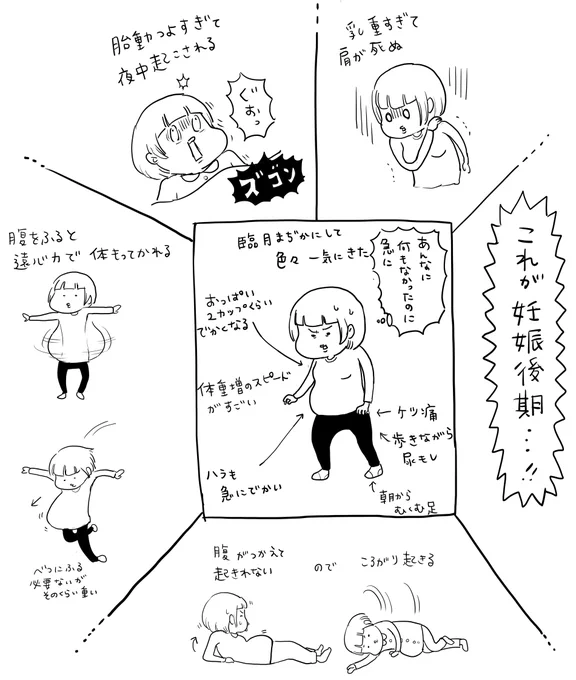 胎動つよすぎて
夜中起こされる
ぐおっ
ズゴン
乳重すぎて
肩が死ぬ
これが妊娠後期…!!
腹をふると
遠心力で体もってかれる
べつにふる
必要ないが
そのくらい重い
臨月まぢかにして
色々一気にきた
あんなに
何もなかったのに
急に
おっぱい
2カップくらい
でかくなる
体重増のスピード
がすごい
ハラも
急にでかい
ケツ痛
歩きながら
尿モレ
朝から
むくむ足
腹がつかえて
起きれない
ので
ころがり起きる